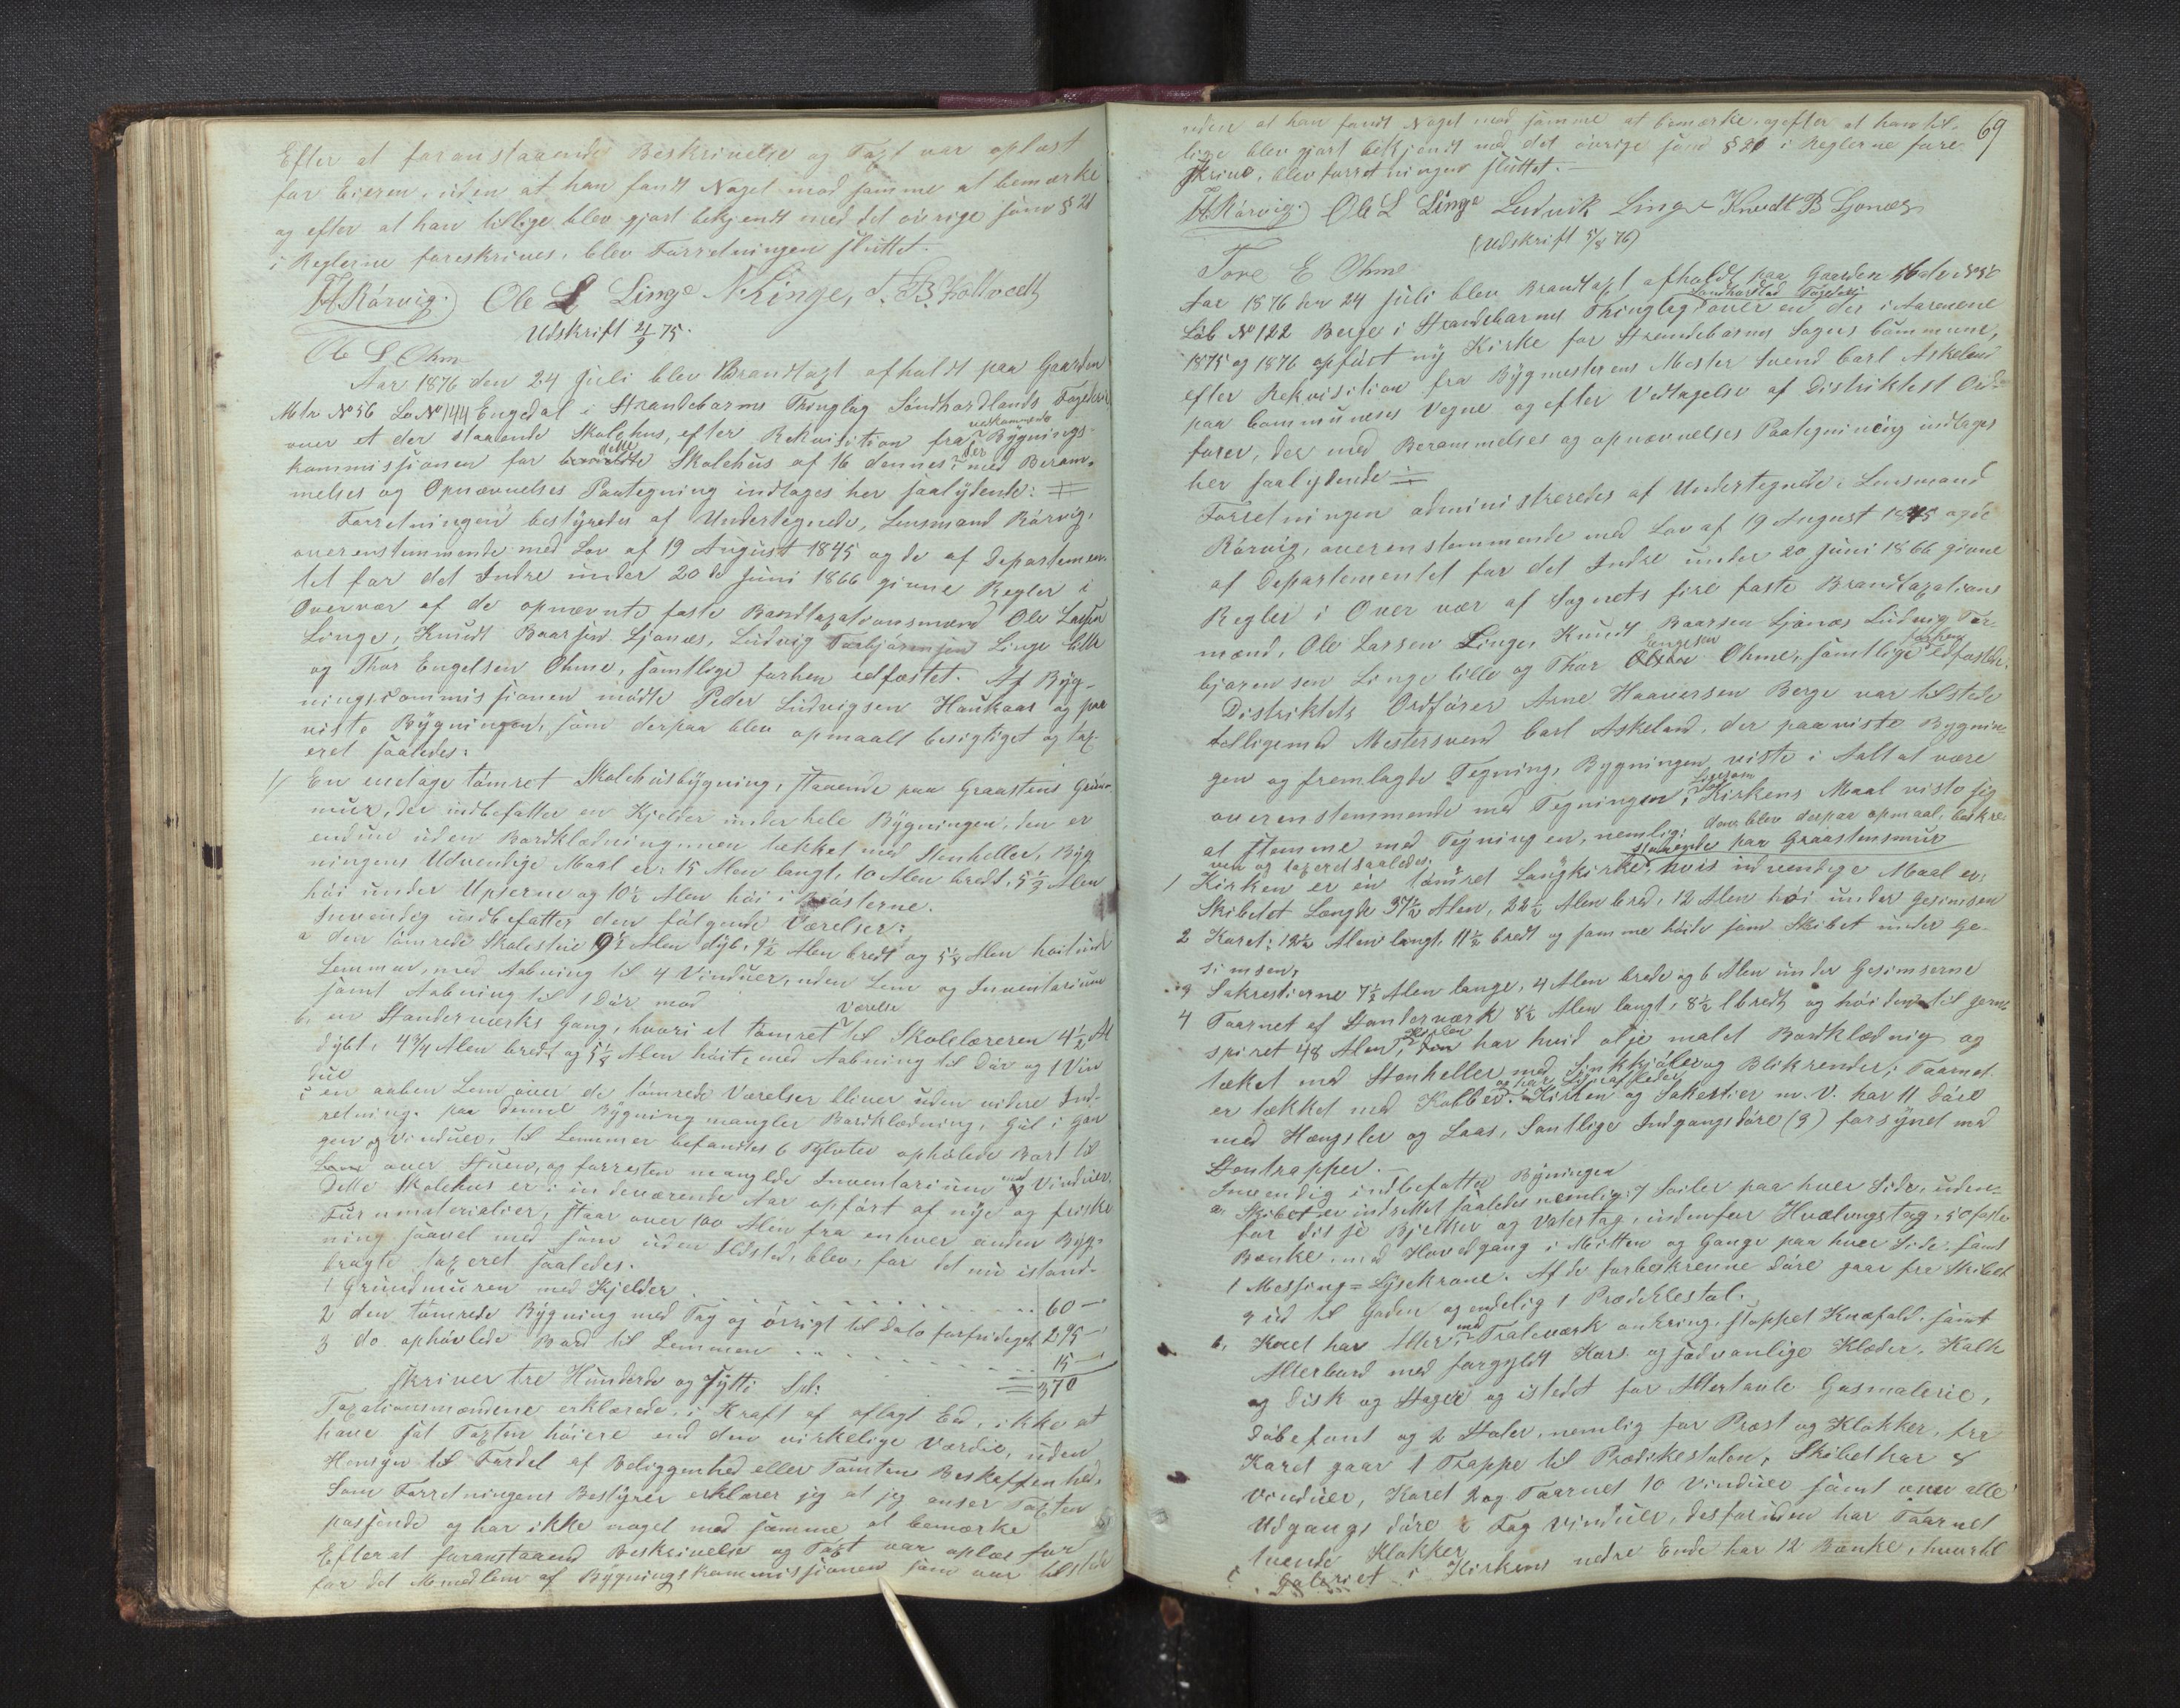 Efter at foranstaaende Beskrivelse og Taxt var oplæst
for Eieren, uden at han fandt Noget mod samme at bemærke
og efter at han tillige blev gjort bekjendt med det övrige som § 21
i Reglerne foreskrives, blev Forretningen sluttet.
H Rörvig. Ole L Linge N Linge,
Udskrift 2/9 75.
Ole L Ohm
Aar 1876 den 24 Juli blev Brandtaxt afholdt paa Gaarden
Mtr No 56 Lb No 144 Engedal i Strandebarms Thinglag Söndhordlands Fogderi
over et der staaende Skolehus, efter Rekvisition fra vedkommende Bygnings-
kommissionen for dette Skolehus af 16 dennes, der med Beram-
melses og Opnævnelses Paategning indtages her saalydende:
Forretningen bestyredes af Undertegnede, Lensmand Rörvig,
overenstemmende med Lov af 19 August 1845 og de af Departemen-
tet for det Indre under 20de Juni 1866 givne Regler i
Overvær af de opnævnte faste Brandtaxationsmænd Ole Larsen
Linge, Knudt Baarsen Ljonæs, Ludvig Torbjörnsen Linge lille
og Thor Engelsen Ohme, samtlige forhen edfæstet. Af Byg-
ningscommissionen mödte Peder Ludvigsen Haukaas og paa
viste Bygningen, som derpaa blev opmaalt besigtiget og tax-
eret saaledes:
1/ En enetages tömret Skolehusbygning, staaende paa Graastens Grund-
mur, der indbefatter en Kjelder under hele Bygningen, den er
endnu uden Bordklædning, men tækket med Stenheller, Byg
ningens Udvendige Maal er: 15 Alen langt, 10 Alen bredt, 5½ Alen
höi under Upserne og 10½ Alen höi i Rösterne.
Invendig indbefatter den fölgende Værelser:
a den tömrede Skolestue 9½ Alen dyb, 9½ Alen bredt og 5¼ Alen höit under
Lemmen, med Aabning til 4 Vinduer, uden Lem og Inventarium
samt Aabning til 1 Dör mod
b, en Standerværks Gang, hvori et tömret Værelse til Skolelæreren 4½ Al
dybt, 4¾ Alen bredt og 5¼ Alen höit, med Aabning til Dör og 1 Vin
due
c en aaben Lem over de tömrede Værelser bliver uden videre Ind-
retning. paa denne Bygning mangler Bordklædning, Gul i Gan
gen og Vinduer, til Lemmer befandtes 6 Tylvter ophölede Bord til
over Stuen, og forresten manglede Inventarium med Vinduer,
Dette Skolehus er i indeværende Aar opfört af nye og friske
Furumaterialier, staar over 100 Alen fra enhver anden Byg-
ning saavel med som uden Ildsted, blev, for det nu istand-
bragte taxeret saaledes.
1 Grundmuren med Kjelder 60 —
2 den tömrede Bygning med Tag og övrigt til Dato forfærdiget 295 —
3 do ophövlede Bord til Lemmen 15 —
skriver tre Hunderde og Sytti Spd: 370
Taxationsmændene erklærede, i Kraft af aflagt Ed, ikke at
have sat Taxten höiere end den virkelige Værdie, uden
Hensyn til Fordel af Beliggenhed eller Tomtens Beskaffenhed.
Som Forretningens Bestyrer erklærer jeg at jeg anser Taxten
passende og har ikke noget mod samme at bemærke
Efter at foranstaaend Beskrivelse og Taxt var oplæs for
for det Mmedlem af Bygningskommissionen som var tilstede
69
uden at han fandt Noget mod samme at bemærke, og efter at han til-
lige blev gjort bekjendt med det övrige som § 21 i Reglerne fore
skrives, blev forretningen sluttet.
H Rörvig. Ole L Linge Ludvik Linge Knudt B Ljonæs
(Udskrift 5/8 76)
Tore E Ohme
Aar 1876 den 24 Juli blev Brandtaxt afholdt paa Gaarden Matr No
Löb No 122 Berge i Strandebarms Thinglag Söndhordlad Fogderi over en der i Aarene
1875 og 1876 opfört ny Kirke for Strandebarms Sogns Commune,
efter Rekvisition fra Bygmesterens Mester Svend Carl Askeland
paa Communens Vegne og efter Vedtagelse af Distriktets Ord-
förer, der med Berammelses og opnævnelses Paategning indtages
her saalydende
Forretningen administreredes af Undertegnede Lensmand
Rörvig, overenstemmende med Lov af 19 August 1845 og de
af Departementet for det Indre under 20 Juni 1866 givne
Regler i Overvær af Sognets fire faste Brandtaxations
mænd, Ole Larsen Linge, Knudt Baarsen Ljonæs Ludvig Tor-
björensen Linge lille og Thor Engelsen Ohme, samtlige forhen edfæstede.
Distriktets Ordförer Arne Haaversen Berge var tilstede
tilligemed Mestersvend Carl Askeland, der paaviste Bygnin
gen og fremlagde Tegning, Bygningen viste i Aalt at være
overenstemmende med Tegningen, Ligesom Kirkens Maal viste sig
at stemme med Tegningen, nemlig: den blev derpaa opmaal, beskre-
ven og taxeret saaledes:
1 Kirken er en tömret Langkirke, staaende paa Graastensmur hvis indvendige Maal er:
Skibetet Længde 37½ Alen, 22½ Alen bred, 12 Alen höi under Gesimsen
2 Koret: 12½ Alen langt, 11½ bredt og samme höide som Skibet under Ge-
simsen,
3 Sakrestierne 7½ Alen lange, 4 Alen brede og 6 Alen under Gesimserne
4 Taarnet af Standerværk 8½ Alen langt, 8½ bredt og höiden til
spiret 48 Alen, Kirken har hvid olje malet Bordklædnig og
tækket med Stenheller med Sinkkjöler og Blikrender; Taarnet
er tækket med Kobber og har Lynafleder. Kirken og Sakestier m. V. har 11 Döre
med Hængsler og Laas, Samtlige Indgangsdöre (3) forsynet med
Stentrapper.
Invendig indbefatter Bygningen
a. Skibet er indrettet saaledes nemlig: 7 Söiler paa hver Side, uden-
for disse Bjelker og Vatertag, indenfor Hvælvingstag, 50 faste
Bænke, med Hovedgang i Mitten og Gange paa hver Side, samt
1 Messing=Lysekrone. Af de forbeskrevne Döre gaar fra Skibet
3 ud til Gaden og endelig 1 Prædiklestol.
b, Koret har Alter med Traleværk omkring, stoppet Knæfald, samt
Alterbord med forgyldt Kors og sædvanlige Klæder, Kalk
og Disk og Stager og istedet for Altertavle Gasmalerie,
Döbefont og 2 Stoler, nemlig for Præst og Klokker, fra
Koret gaar 1 Trappe til Prædikestolen, Skibet har 8
Vinduer, Koret 2 og Taarnet 10 Vinduer samt over alle
Udgangs döre Fag Vinduer, desforuden har Taarnet
tvende Klokker
c, Galeriet i Kirkens nedre Ende har 12 Bænke, hvortil